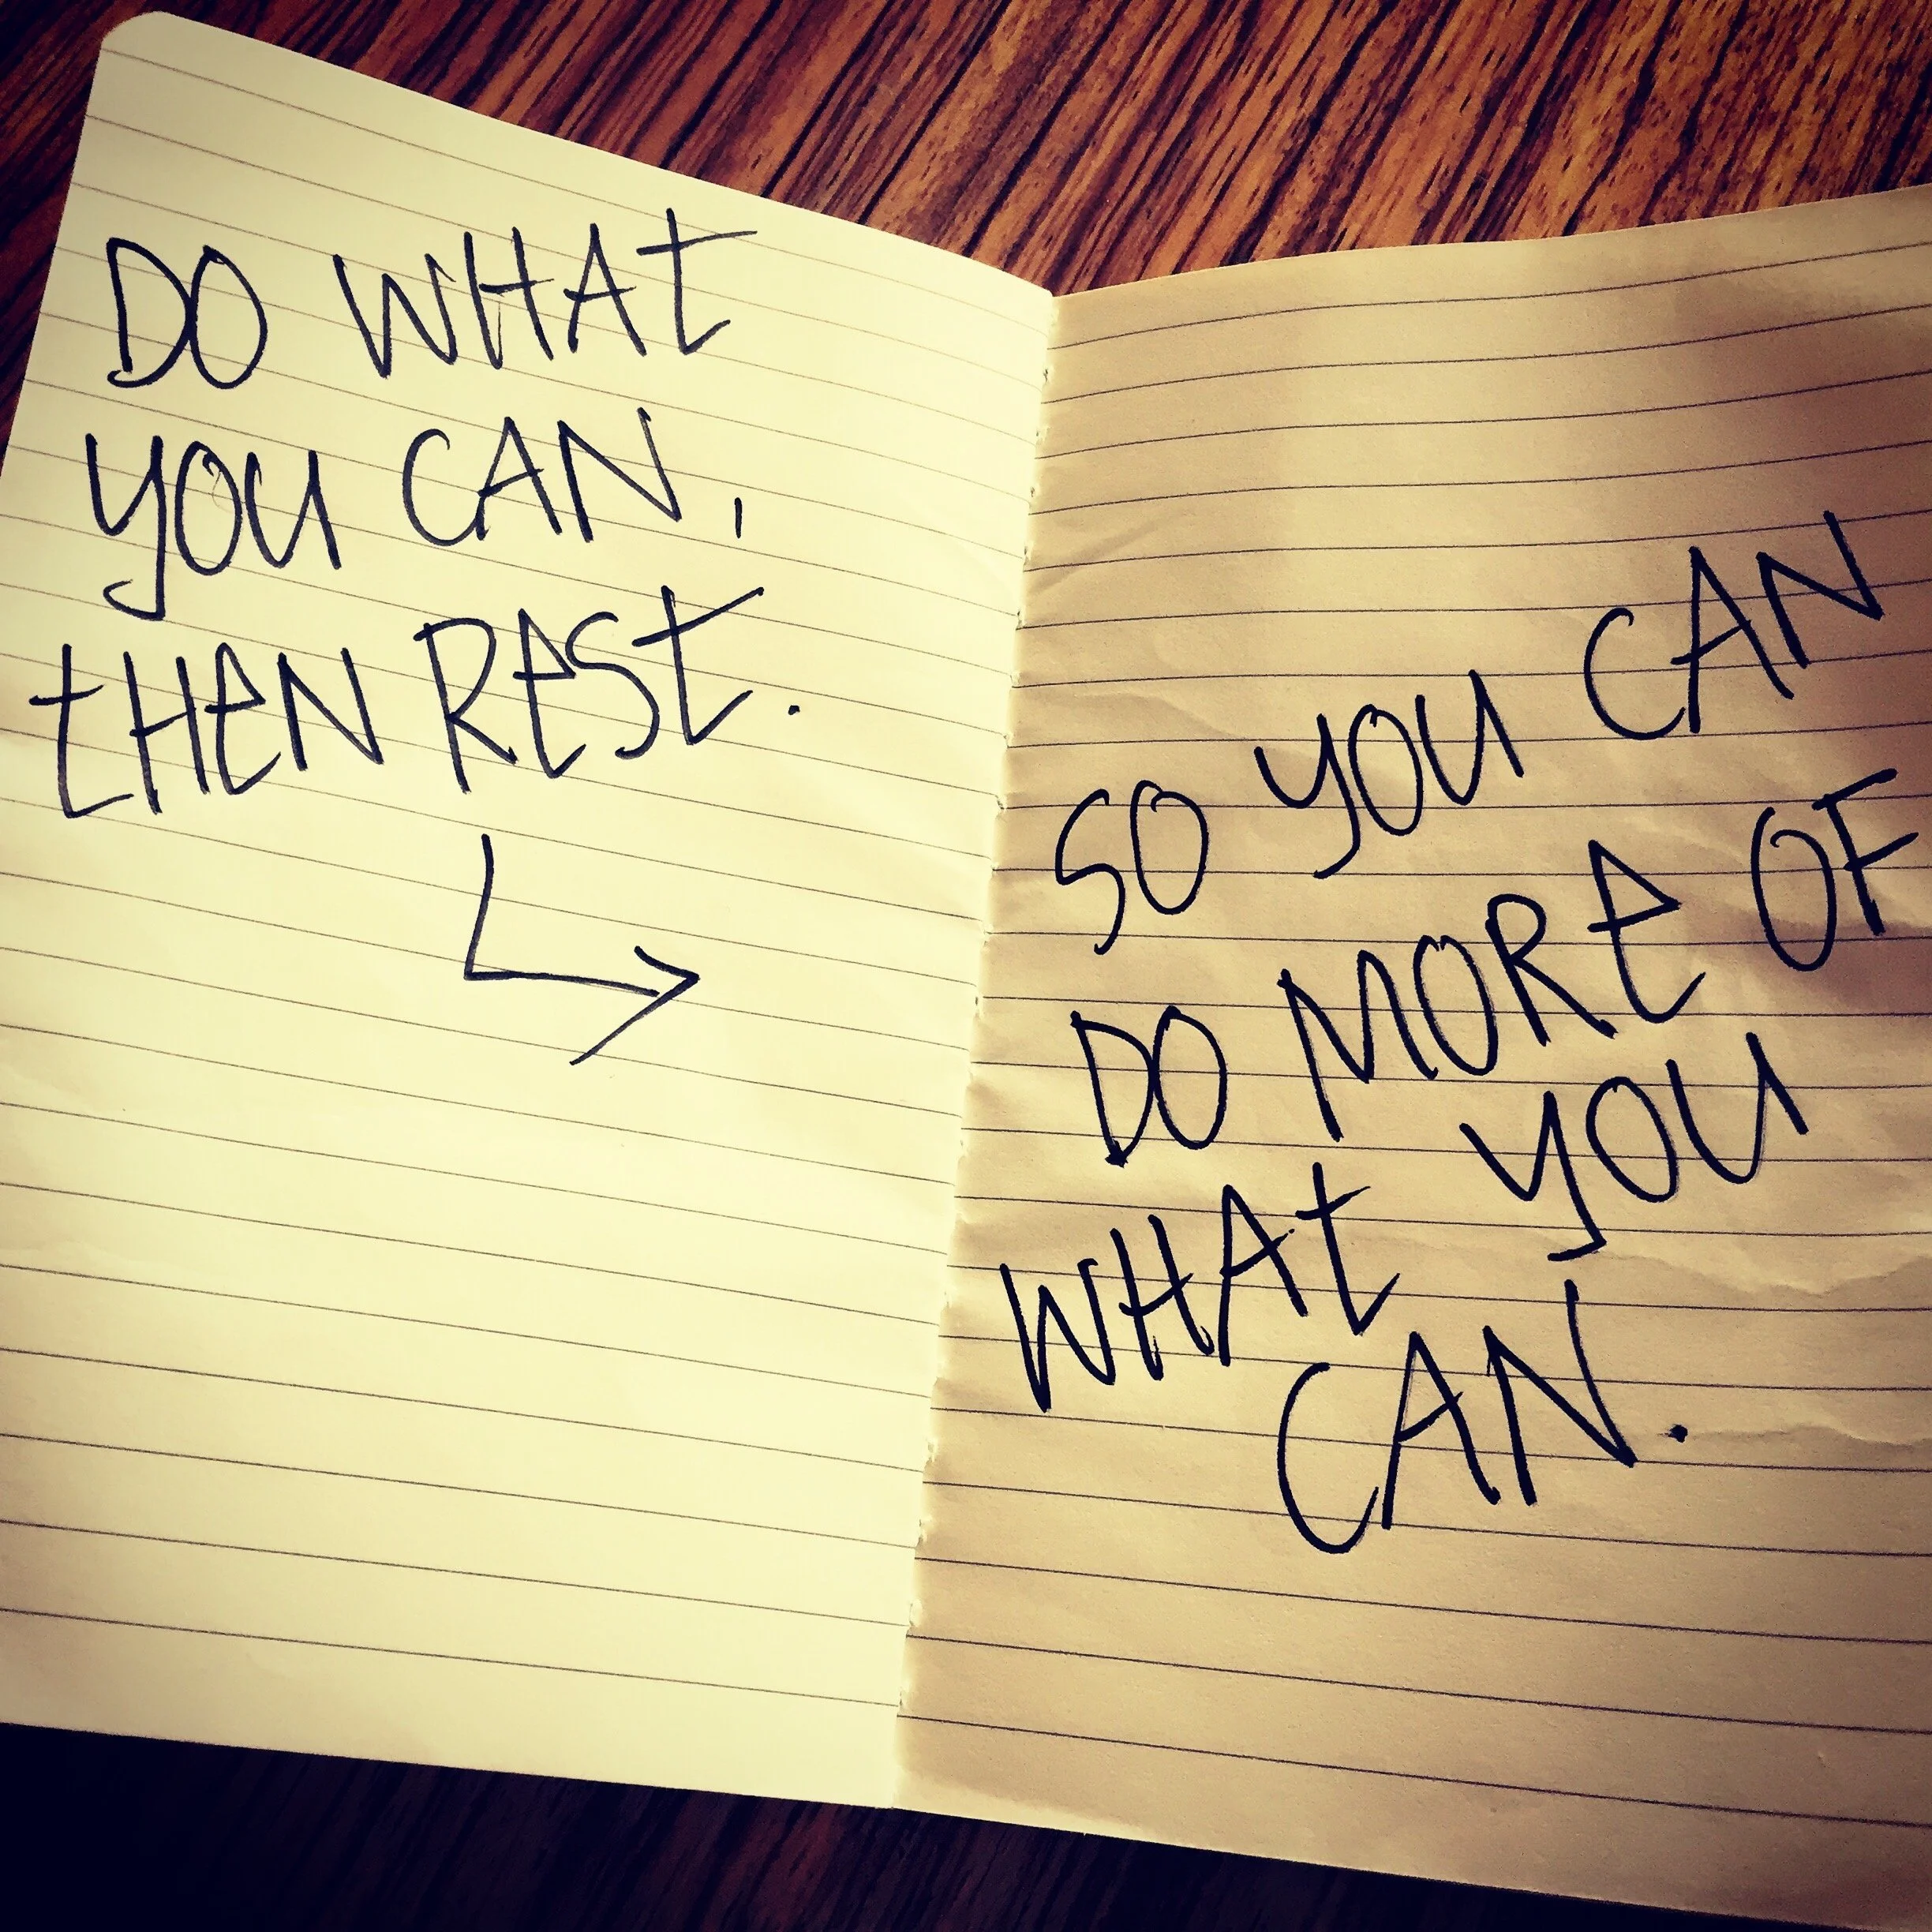 DO WHAt
YOU CAN,
tHeN ReSt.
SO YOU CAN
DO MORe OF
WHAt YOU
CAN.